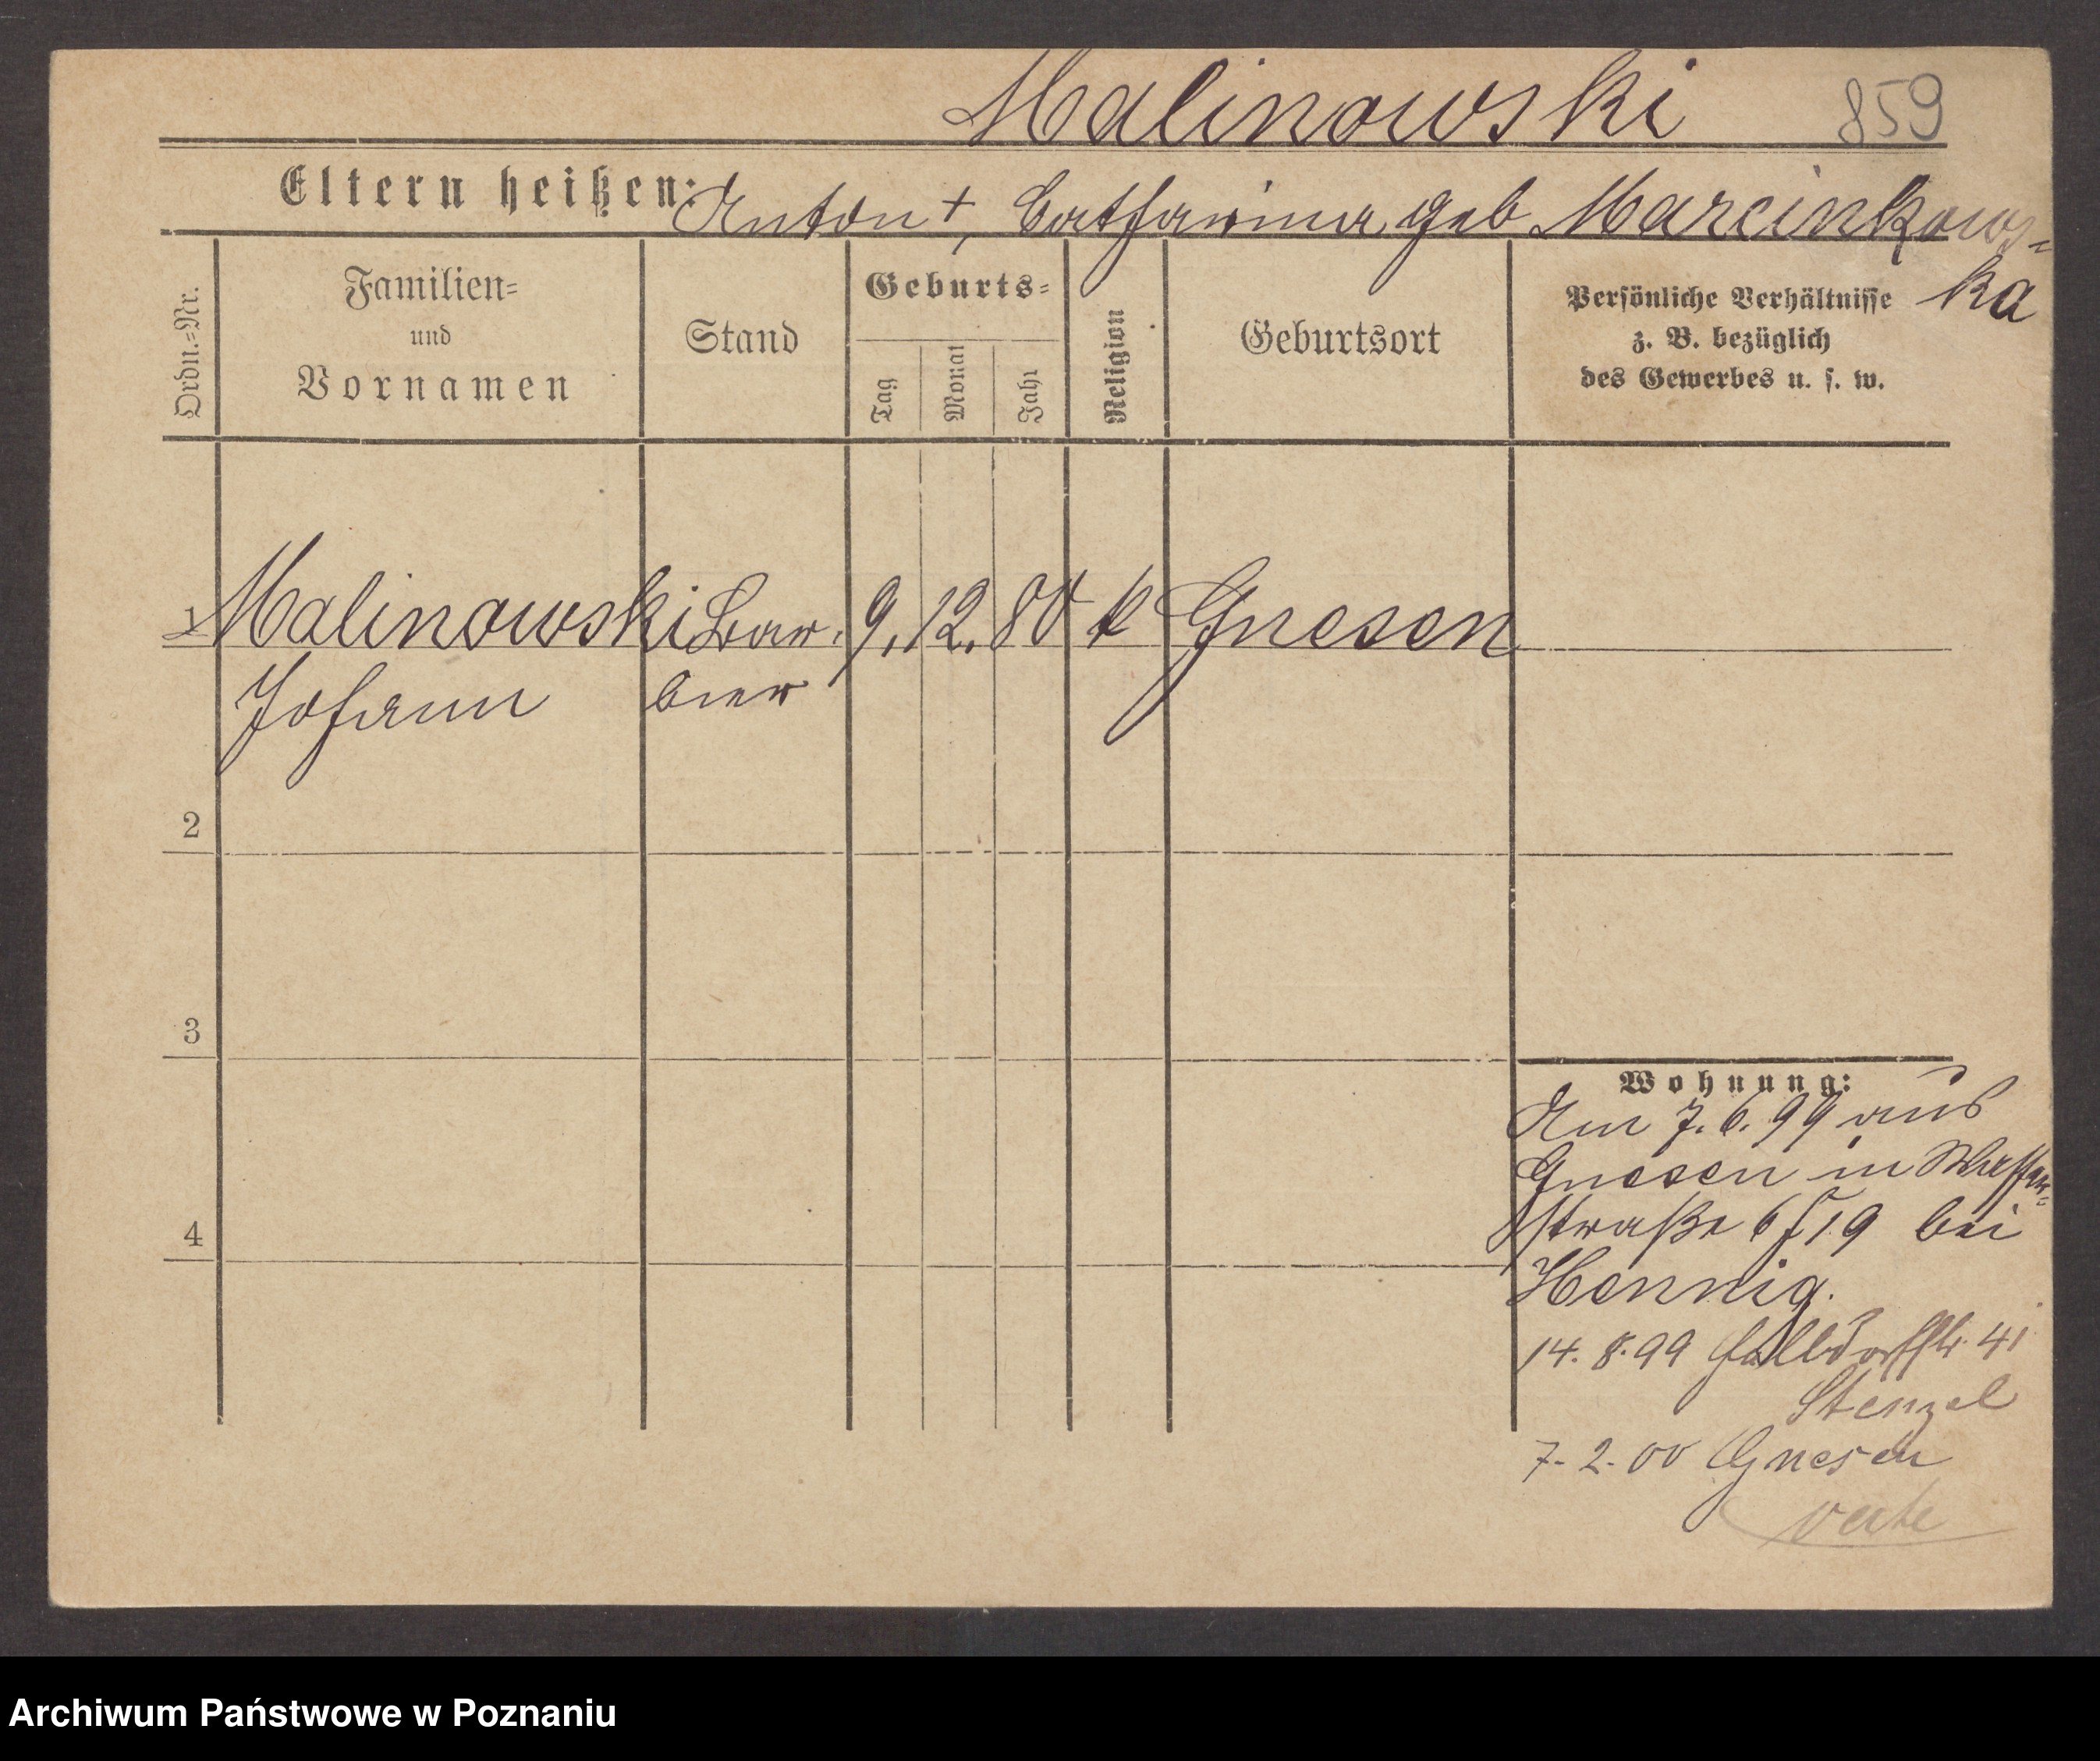 Malinowski 859
Eltern heißen: Anton +, Catharina geb Marcinkows=
ka
Ordn.=Nr.
Familien=
und
Vornamen
Stand
Geburts=
Tag
Monat
Jahr
Religion
Geburtsort
Persönliche Verhältnisse
z. B. bezüglich
des Gewerbes u. s. w.
1 Malinowski Bar. 9. 12. 80 k Gnesen
Johann bier
2
3
4
Wohnung:
Am 7. 6. 99 aus
Gnesen in
straße 19 bei
Hennig.
14. 8. 99 41
Stenzel
7. 2. 00 Gnesen
verte
Archiwum Państwowe w Poznaniu